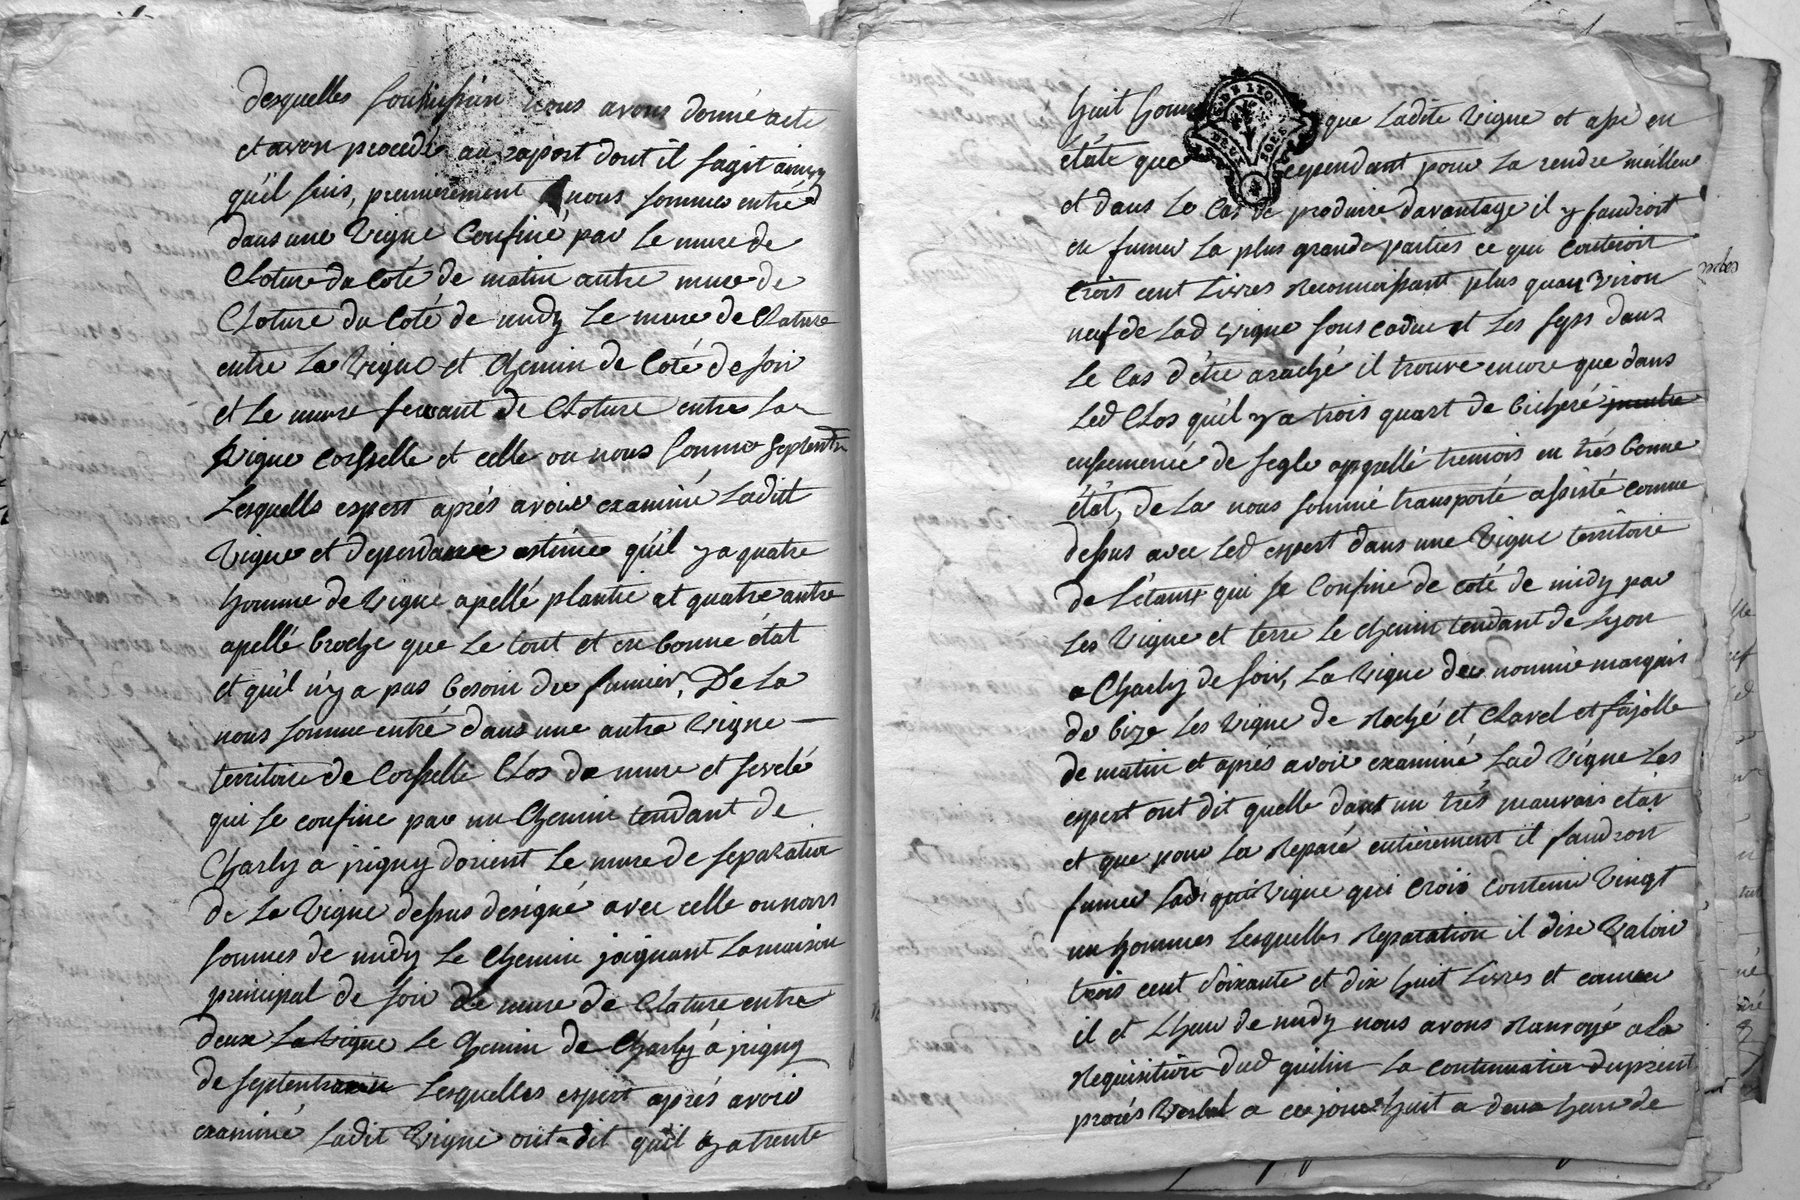 desquelles soumission nous avons donné acte
et avon procedé au raport dont il sagit ainsy
qu'il suis, premierement nous sommes entré
dans une vigne Confiné par Le mure de
Cloture du Coté de matin autre mure de
Cloture du Coté de midy Le mure de Clature
entre La vigne et chemin de Coté de soir
et Le mure servant de Cloture entre La
vigne Corsselle et celle ou nous somme septentn
Lesquells expert aprés avoir examiné Laditt
vigne et dependance estime qu'il y a quatre
homme de vigne apellé plantié et quatre autre
apellé broche que Le tout et en bonne état
et qu'il n'y a pas besoin du fumier, De La
nous somme entré dans une autre vigne
territoire de Corsselle Clos de mure et
qui se confine par un chemin tendant de
Charly a jrigny dorient Le mure de separation
de La vigne dessus désigné avec celle ou nous
sommes de midy Le chemin joignant La maison
principal de soir Le mure de Clature entre
deux La vigne Le chemin de Charly á jrigny
de septentrion Lesquelles expert aprés avoir
examiné Ladit vigne ont dit qu'il y a trente
huit homme que Ladite vigne et assé en
état que cependant pour La rendre meilleur
et dans Le Cas de produire davantage il y faudroit
en fumer La plus grande parties ce qui Couteroit
trois cent Livres Reconnoissant plus quanviron
neuf de Lad vigne sous cadue et Les seps dans
Le Cas d'étre araché il trouve encore que dans
Led Clos qu'il y a trois quart de bicheré
ensemencé de segle appellé tremois en trés bonne
état, de La nous somme transporté assisté comme
dessus avec Led expert dans une vigne territoire
de qui se Confine de coté de midy par
Les vigne et terre Le chemin tendant de Lyon
a Charly de soir, La vigne du nommé marquis
de bize Les vigne de Roché et Clavel et fajolle
de matin et aprés avoir examiné Lad vigne Les
expert ont dit quelle dans un trés mauvais etat
et que pour La Reparé entiérement il faudroit
fumer vigne qui Crois Contenir vingt
un hommes Lesquelles Reparation il dise valoir
trois cent Soixante et dix huit Livres et comme
il et Lheur de midy nous avons Ranvoyé a La
Requisition dud quélin La continuation du present
procés verbal a ce jour huit a deux heur de